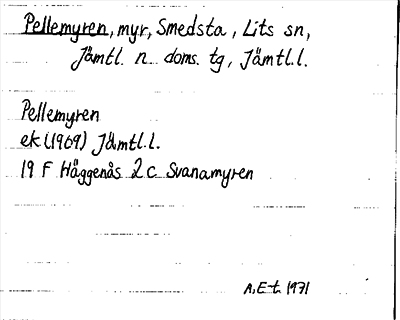 Pellemyren, myr, Smedsta, Lits sn,
Jämtl. n. doms. tg, Jämtl.l.
Pellemyren
ek (1969) Jämtl.l.
19 F Häggenås 2 c Svanamyren
A.E-t. 1971